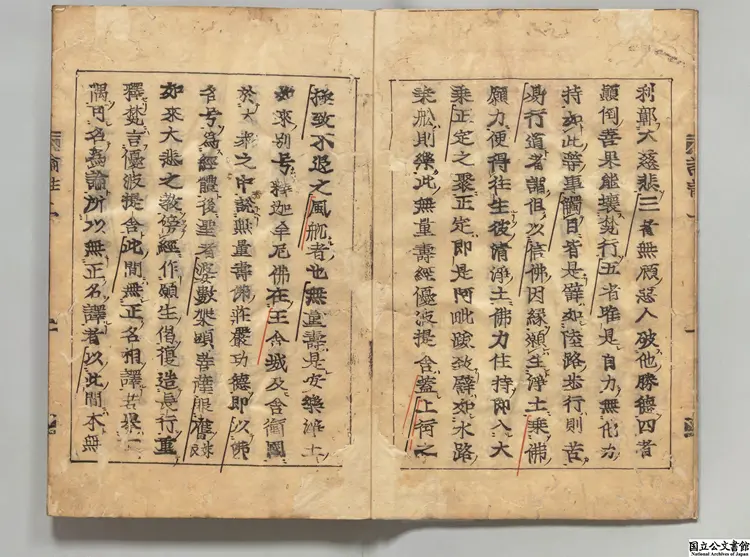 利鄣大慈悲三者無顧惡人破他勝德四者
顛倒善果能壞梵行五者唯是自力無他力
持如此等事觸目皆是譬如陸路步行則苦
易行道者謂但以信佛因緣願生淨土乘佛
願力便得往生彼清淨土佛力住持即入大
乘正定之聚正定即是阿毗跋致譬如水路
乘船則樂此無量壽經優波提舍蓋上衍之
極致不退之風航者也無量壽是安樂淨土
如來別号釋迦牟尼佛在王舍城及舍衛國
於大衆之中說無量壽佛莊嚴功德即以佛
名号爲經體後聖者婆藪槃頭菩薩服膺
如來大悲之教傍經作願生偈復造長行重
釋梵言優波提舍此間無正名相譯若擧一
隅可名爲論所以無正名譯者以此間本無
論註
国立公文書館
National Archives of Japan